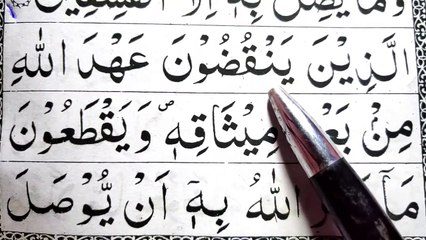 وَمَا يُضِلُّ بِهٖٓ اِلَّا الْفٰسِقِيْنَ
الَّذِيْنَ يَنْقُضُوْنَ عَهْدَ اللّٰهِ
مِنْۢ مِيْثَاقِهٖ ۪ وَيَقْطَعُوْنَ
مَآ اللّٰهُ بِهٖٓ اَنْ يُّوْصَلَ